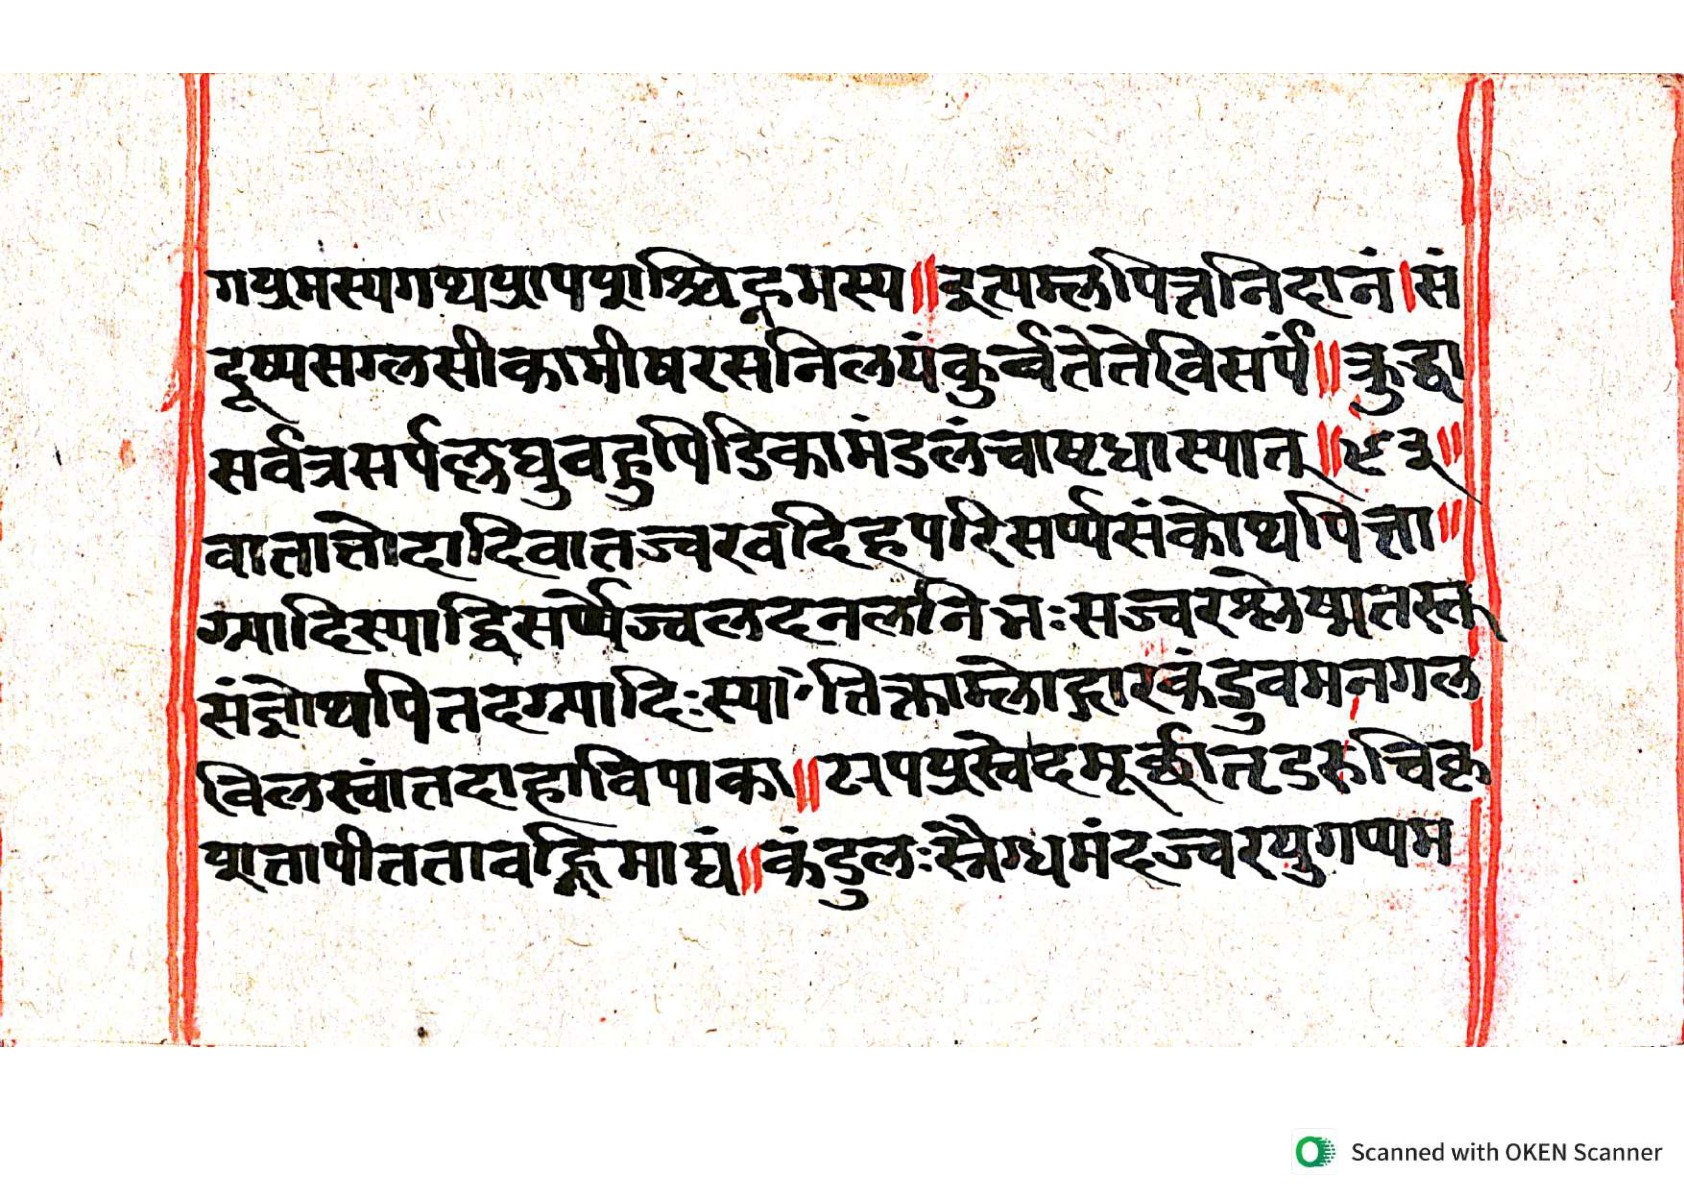 गयुमस्यगथयुापपुाश्चिह्नमस्य॥इत्यम्लपित्तनिदानं।सं
दूष्यसग्लसीकामीषरसनिलयंकुर्व्वतेतेविसर्पं॥क्रुद्धा
सर्वत्रसर्पल्लघुवहुपिडिकामंडलंचाष्टधास्यात्॥९३॥
वातात्तोदादिवातज्वरवदिहपरिसर्प्पसंकोथपित्ता॥
ग्न्यादिस्याद्विसर्प्पेज्वलदनलनिभःसज्वरश्लेष्मतस्त
दिःस्यां तिक्ताम्लोद्गारकंडुवमनगल
विलस्वांतदाहाविपाका॥
त्तापीततावह्निमाद्यं॥कंडुलःस्नैग्ध्यमंदज्वरयुगप्यम
Scanned with OKEN Scanner